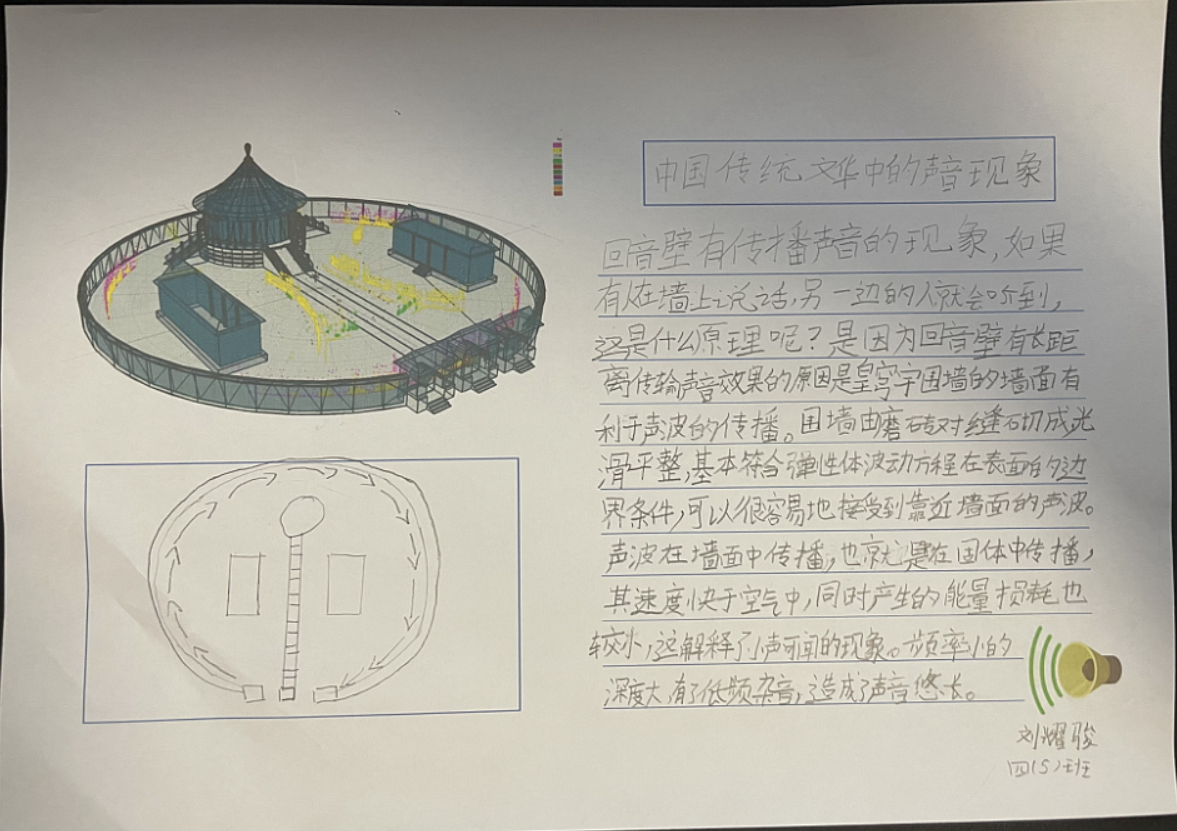 中国传统文华中的声音现象
回音壁有传播声音的现象,如果
有人在墙上说话,另一边的人就会听到,
这是什么原理呢?是因为回音壁有长距
离传输声音效果的原因是皇穹宇围墙的墙面有
利于声波的传播。围墙由磨砖对缝砌成光
滑平整,基本符合弹性体波动方程在表面的边
界条件,可以很容易地接受到靠近墙面的声波。
声波在墙面中传播,也就是在固体中传播,
其速度快于空气中,同时产生的能量损耗也
较小,这解释了小声可闻的现象。频率小的
深度大,有了低频杂音,造成了声音悠长。
刘耀骏
四(5)班